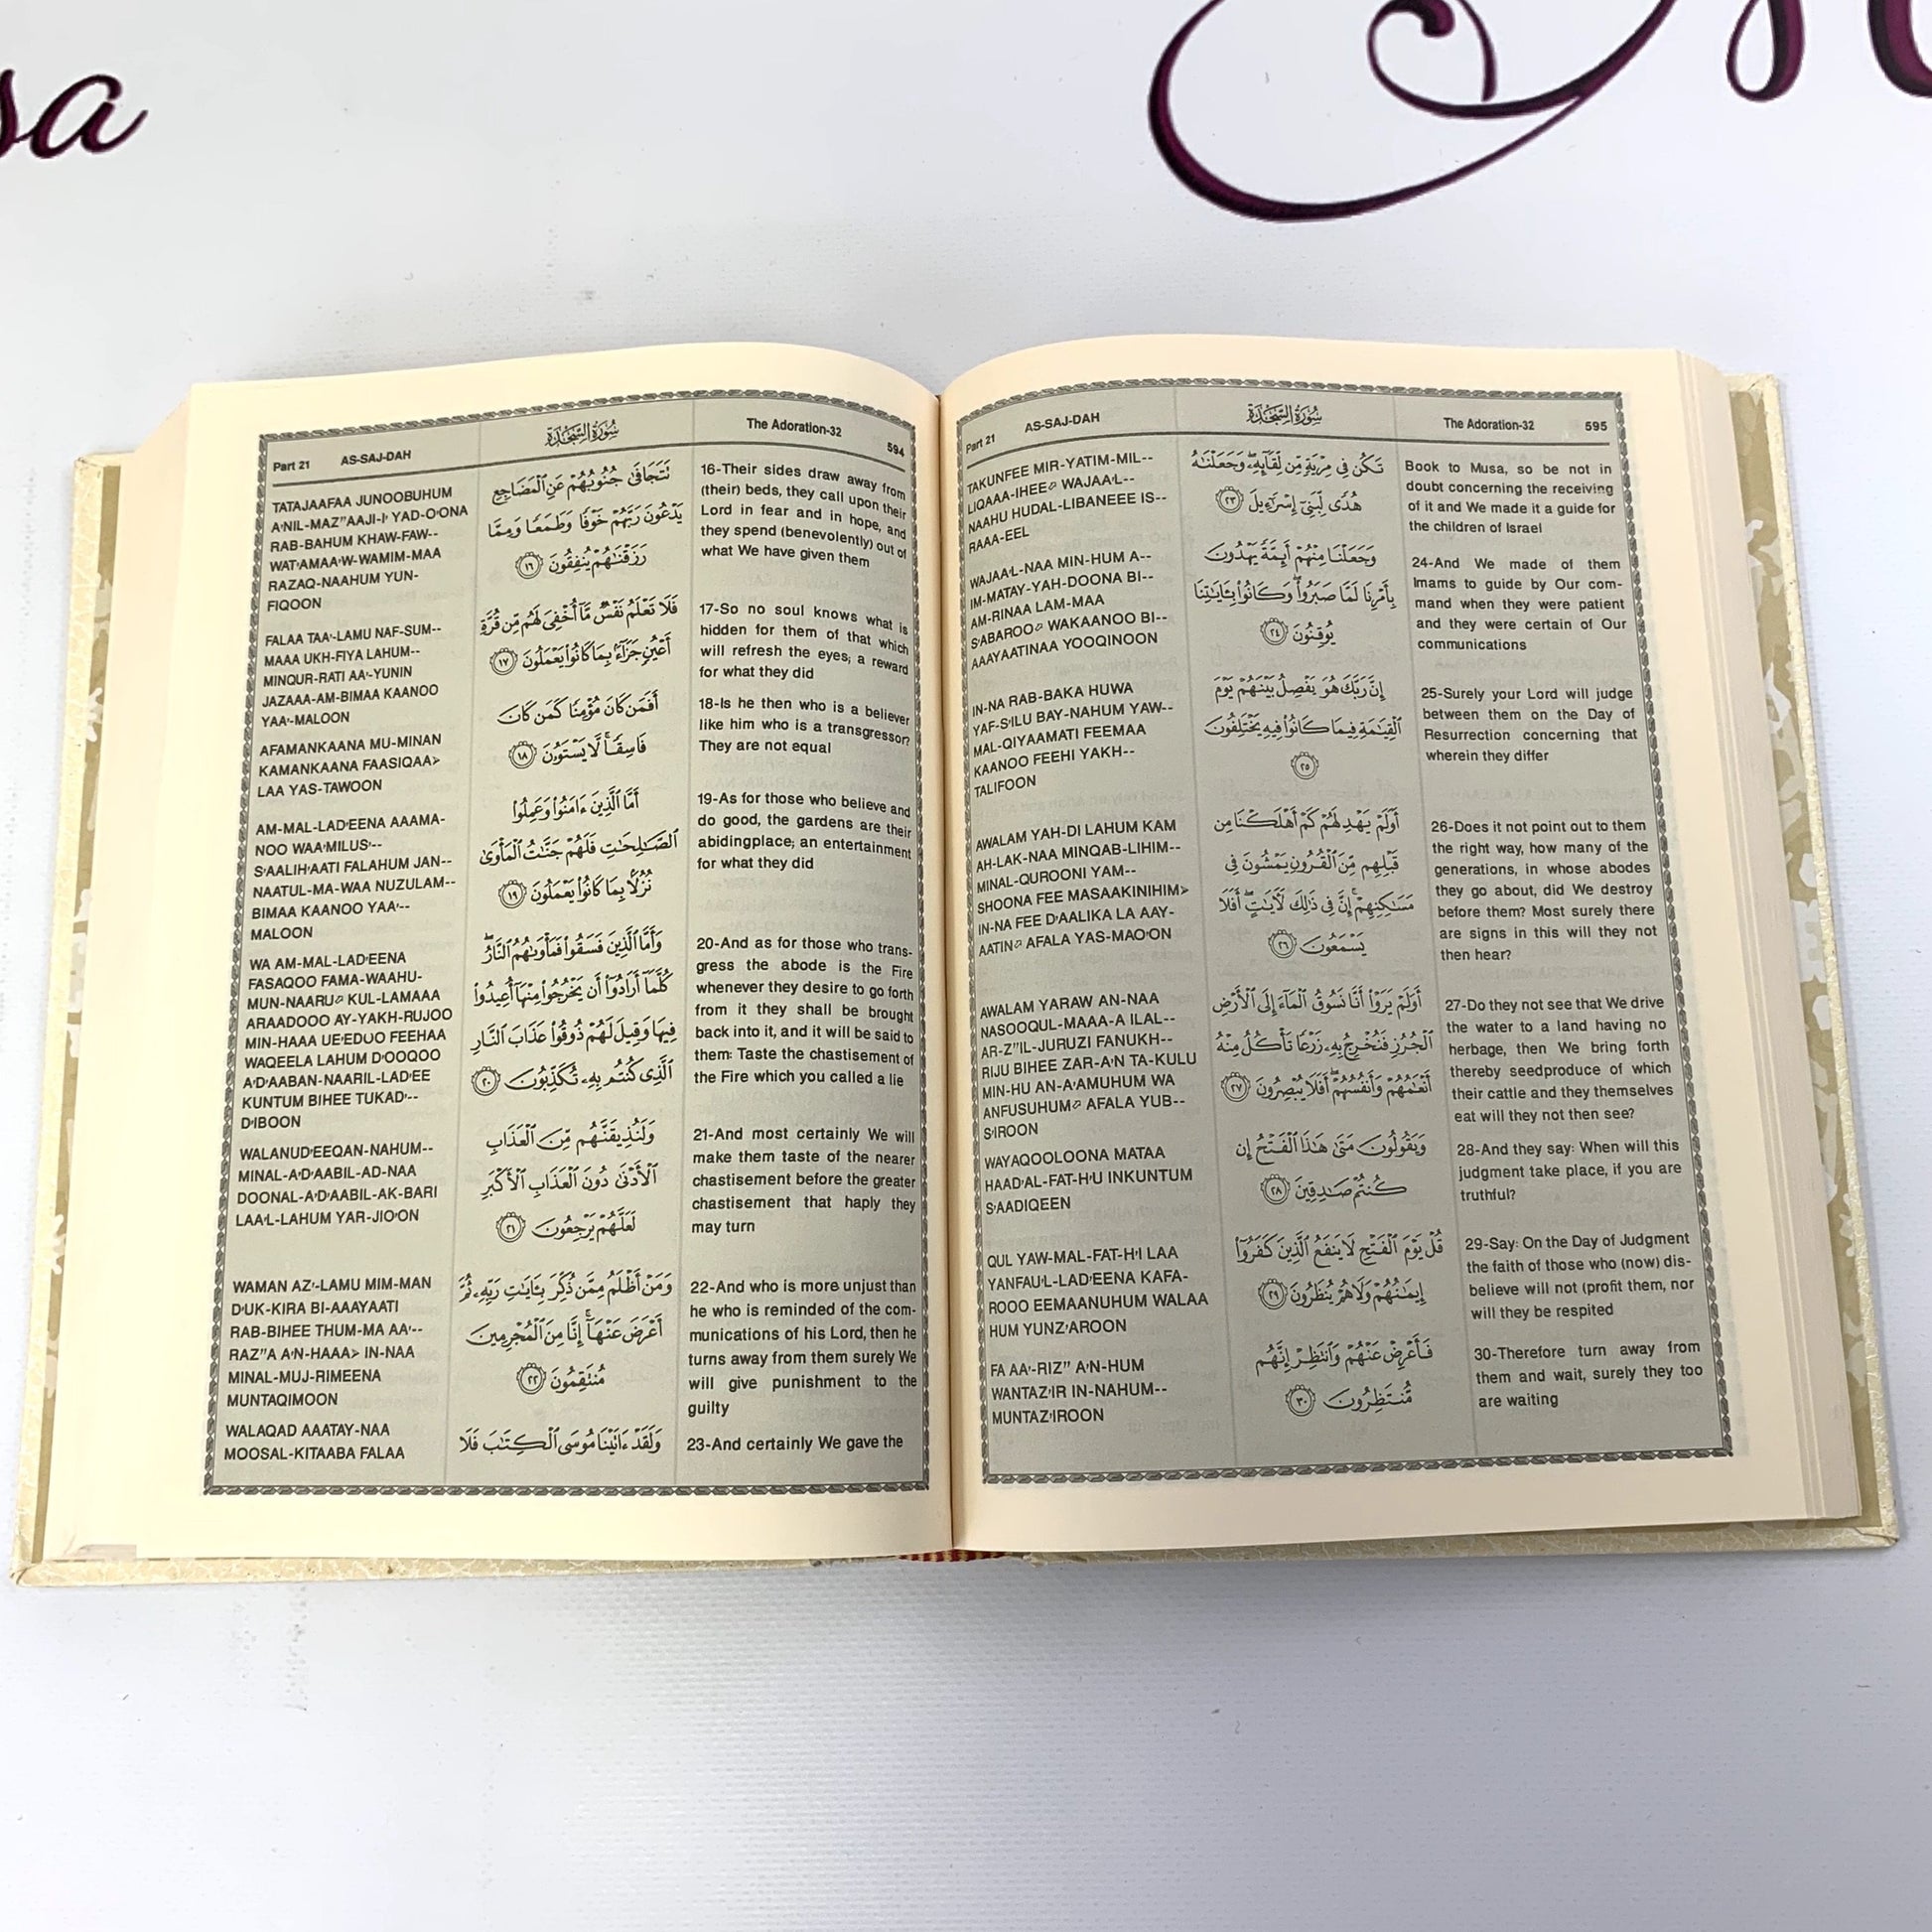 sa
Part 21
AS-SAJ-DAH
سُورَةُ السَّجْدَةِ
The Adoration-32
594
TATAJAAFAA JUNOOBUHUM
A'NIL-MAZ"AAJI-I' YAD-O'ONA
RAB-BAHUM KHAW-FAW--
WAT'AMAA'W-WAMIM-MAA
RAZAQ-NAAHUM YUN-
FIQOON
FALAA TAA'-LAMU NAF-SUM--
MAAA UKH-FIYA LAHUM--
MINQUR-RATI AA'-YUNIN
JAZAAA-AM-BIMAA KAANOO
YAA'-MALOON
AFAMANKAANA MU-MINAN
KAMANKAANA FAASIQAA>
LAA YAS-TAWOON
AM-MAL-LAD'EENA AAAMA-
NOO WAA'MILUS'--
S'AALIH'AATI FALAHUM JAN--
NAATUL-MA-WAA NUZULAM--
BIMAA KAANOO YAA'--
MALOON
WA AM-MAL-LAD'EENA
FASAQOO FAMA-WAAHU-
MUN-NAARU KUL-LAMAAA
ARAADOOO AY-YAKH-RUJOO
MIN-HAAA UE'EDUO FEEHAA
WAQEELA LAHUM D'OOQOO
A'D'AABAN-NAARIL-LAD'EE
KUNTUM BIHEE TUKAD'--
D'IBOON
WALANUD'EEQAN-NAHUM--
MINAL-A'D'AABIL-AD-NAA
DOONAL-A'D'AABIL-AK-BARI
LAA'L-LAHUM YAR-JIO'ON
WAMAN AZ'-LAMU MIM-MAN
D'UK-KIRA BI-AAAYAATI
RAB-BIHEE THUM-MA AA'--
RAZ"A A'N-HAAA> IN-NAA
MINAL-MUJ-RIMEENA
MUNTAQIMOON
WALAQAD AAATAY-NAA
MOOSAL-KITAABA FALAA
تَتَجَافَىٰ جُنُوبُهُمْ عَنِ ٱلْمَضَاجِعِ
يَدْعُونَ رَبَّهُمْ خَوْفًا وَطَمَعًا وَمِمَّا
رَزَقْنَٰهُمْ يُنفِقُونَ ١٦
فَلَا تَعْلَمُ نَفْسٌ مَّآ أُخْفِىَ لَهُم مِّن قُرَّةِ
أَعْيُنٍ جَزَآءًۢ بِمَا كَانُوا۟ يَعْمَلُونَ ١٧
أَفَمَن كَانَ مُؤْمِنًا كَمَن كَانَ
فَاسِقًا ۚ لَّا يَسْتَوُۥنَ ١٨
أَمَّا ٱلَّذِينَ ءَامَنُوا۟ وَعَمِلُوا۟
ٱلصَّٰلِحَٰتِ فَلَهُمْ جَنَّٰتُ ٱلْمَأْوَىٰ
نُزُلًۢا بِمَا كَانُوا۟ يَعْمَلُونَ ١٩
وَأَمَّا ٱلَّذِينَ فَسَقُوا۟ فَمَأْوَىٰهُمُ ٱلنَّارُ ۖ
كُلَّمَآ أَرَادُوٓا۟ أَن يَخْرُجُوا۟ مِنْهَآ أُعِيدُوا۟
فِيهَا وَقِيلَ لَهُمْ ذُوقُوا۟ عَذَابَ ٱلنَّارِ
ٱلَّذِى كُنتُم بِهِۦ تُكَذِّبُونَ ٢٠
وَلَنُذِيقَنَّهُم مِّنَ ٱلْعَذَابِ
ٱلْأَدْنَىٰ دُونَ ٱلْعَذَابِ ٱلْأَكْبَرِ
لَعَلَّهُمْ يَرْجِعُونَ ٢١
وَمَنْ أَظْلَمُ مِمَّن ذُكِّرَ بِـَٔايَٰتِ رَبِّهِۦ ثُمَّ
أَعْرَضَ عَنْهَآ ۚ إِنَّا مِنَ ٱلْمُجْرِمِينَ
مُنتَقِمُونَ ٢٢
وَلَقَدْ ءَاتَيْنَا مُوسَى ٱلْكِتَٰبَ فَلَا
16-Their sides draw away from
(their) beds, they call upon their
Lord in fear and in hope, and
they spend (benevolently) out of
what We have given them
17-So no soul knows what is
hidden for them of that which
will refresh the eyes; a reward
for what they did
18-Is he then who is a believer
like him who is a transgressor?
They are not equal
19-As for those who believe and
do good, the gardens are their
abidingplace; an entertainment
for what they did
20-And as for those who trans-
gress the abode is the Fire
whenever they desire to go forth
from it they shall be brought
back into it, and it will be said to
them: Taste the chastisement of
the Fire which you called a lie
21-And most certainly We will
make them taste of the nearer
chastisement before the greater
chastisement that haply they
may turn
22-And who is more unjust than
he who is reminded of the com-
munications of his Lord, then he
turns away from them surely We
will give punishment to the
guilty
23-And certainly We gave the
Part 21
AS-SAJ-DAH
سُورَةُ السَّجْدَةِ
The Adoration-32
595
TAKUNFEE MIR-YATIM-MIL--
LIQAAA-IHEE WAJAA'L--
NAAHU HUDAL-LIBANEEE IS--
RAAA-EEL
WAJAA'L-NAA MIN-HUM A--
IM-MATAY-YAH-DOONA BI--
AM-RINAA LAM-MAA
S'ABAROO WAKAANOO BI--
AAAYAATINAA YOOQINOON
IN-NA RAB-BAKA HUWA
YAF-S'ILU BAY-NAHUM YAW--
MAL-QIYAAMATI FEEMAA
KAANOO FEEHI YAKH--
TALIFOON
AWALAM YAH-DI LAHUM KAM
AH-LAK-NAA MINQAB-LIHIM--
MINAL-QUROONI YAM--
SHOONA FEE MASAAKINIHIM>
IN-NA FEE D'AALIKA LA AAY-
AATIN AFALA YAS-MAO'ON
AWALAM YARAW AN-NAA
NASOOQUL-MAAA-A ILAL--
AR-Z"IL-JURUZI FANUKH--
RIJU BIHEE ZAR-A'N TA-KULU
MIN-HU AN-A'AMUHUM WA
ANFUSUHUM AFALA YUB--
S'IROON
WAYAQOOLOONA MATAA
HAAD'AL-FAT-H'U INKUNTUM
S'AADIQEEN
QUL YAW-MAL-FAT-H'I LAA
YANFAU'L-LAD'EENA KAFA-
ROOO EEMAANUHUM WALAA
HUM YUNZ'AROON
FA AA'-RIZ" A'N-HUM
WANTAZ'IR IN-NAHUM--
MUNTAZ'IROON
تَكُن فِى مِرْيَةٍ مِّن لِّقَآئِهِۦ ۖ وَجَعَلْنَٰهُ
هُدًى لِّبَنِىٓ إِسْرَٰٓءِيلَ ٢٣
وَجَعَلْنَا مِنْهُمْ أَئِمَّةً يَهْدُونَ
بِأَمْرِنَا لَمَّا صَبَرُوا۟ ۖ وَكَانُوا۟ بِـَٔايَٰتِنَا
يُوقِنُونَ ٢٤
إِنَّ رَبَّكَ هُوَ يَفْصِلُ بَيْنَهُمْ يَوْمَ
ٱلْقِيَٰمَةِ فِيمَا كَانُوا۟ فِيهِ يَخْتَلِفُونَ
٢٥
أَوَلَمْ يَهْدِ لَهُمْ كَمْ أَهْلَكْنَا مِن
قَبْلِهِم مِّنَ ٱلْقُرُونِ يَمْشُونَ فِى
مَسَٰكِنِهِمْ ۚ إِنَّ فِى ذَٰلِكَ لَـَٔايَٰتٍ ۖ أَفَلَا
يَسْمَعُونَ ٢٦
أَوَلَمْ يَرَوْا۟ أَنَّا نَسُوقُ ٱلْمَآءَ إِلَى ٱلْأَرْضِ
ٱلْجُرُزِ فَنُخْرِجُ بِهِۦ زَرْعًا تَأْكُلُ مِنْهُ
أَنْعَٰمُهُمْ وَأَنفُسُهُمْ ۖ أَفَلَا يُبْصِرُونَ ٢٧
وَيَقُولُونَ مَتَىٰ هَٰذَا ٱلْفَتْحُ إِن
كُنتُمْ صَٰدِقِينَ ٢٨
قُلْ يَوْمَ ٱلْفَتْحِ لَا يَنفَعُ ٱلَّذِينَ كَفَرُوٓا۟
إِيمَٰنُهُمْ وَلَا هُمْ يُنظَرُونَ ٢٩
فَأَعْرِضْ عَنْهُمْ وَٱنتَظِرْ إِنَّهُم
مُّنتَظِرُونَ ٣٠
Book to Musa, so be not in
doubt concerning the receiving
of it and We made it a guide for
the children of Israel
24-And We made of them
Imams to guide by Our com-
mand when they were patient
and they were certain of Our
communications
25-Surely your Lord will judge
between them on the Day of
Resurrection concerning that
wherein they differ
26-Does it not point out to them
the right way, how many of the
generations, in whose abodes
they go about, did We destroy
before them? Most surely there
are signs in this will they not
then hear?
27-Do they not see that We drive
the water to a land having no
herbage, then We bring forth
thereby seedproduce of which
their cattle and they themselves
eat will they not then see?
28-And they say: When will this
judgment take place, if you are
truthful?
29-Say: On the Day of Judgment
the faith of those who (now) dis-
believe will not (profit them, nor
will they be respited
30-Therefore turn away from
them and wait, surely they too
are waiting